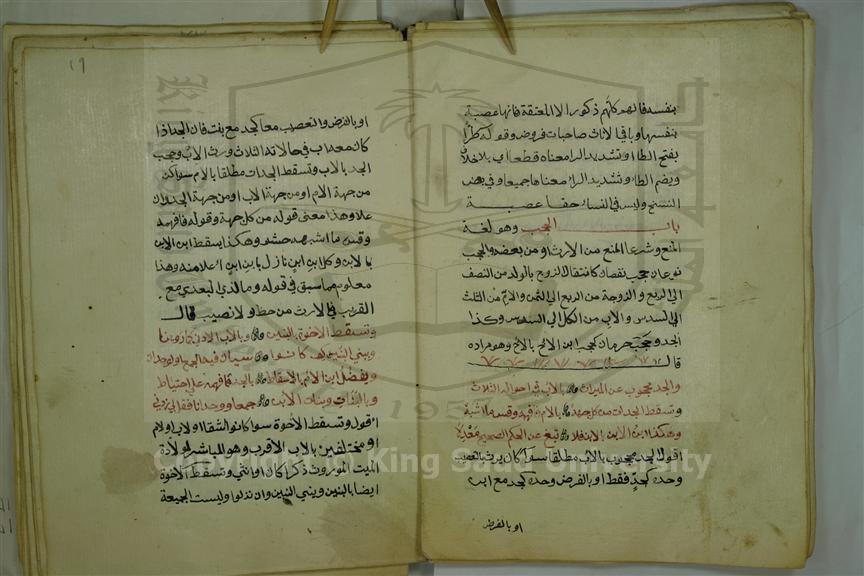 بنفسه فالهو كانهم ذكورا الا المعتقة فانها عصبة
بنفسها وباقي الاناث صاحبات فروض وقوله طرا
بفتح الطا وتشديد الرا معناه قطعا اي بلا خلاف
وبضم الطا وتشديد الرا معناها جميعا وفي بعض
النسخ وليس في النساء حقا عصبة
باب الحجب وهو لغة
المنع وشرعا المنع من الارث او من بعضه والحجب
نوعان حجب نقصان كانتقال الزوج بالولد من النصف
الي الربع والزوجة من الربع الي الثمن والام من الثلث
الي السدس والاب من الكل الي السدس وكذا
الجد وحجب حرمان كحجب ابن الاخ بالاخ وهو مراده
قال
والجد محجوب عن الميراث بالاب في احواله الثلاث
وتسقط الجدات من كل جهة بالام فافهمه وقس ما اشبه
وهكذا ابن الابن بالابن فلا تبغ عن الحكم الصحيح معدلا
اقول الجد محجوب بالاب مطلقا سوا كان يرث بالتعصيب
وحده كجد فقط او بالفرض وحده كجد مع ابن
او بالفرض
١٩
او بالفرض والتعصيب معا كجد مع بنت فان الجد اذا
كان معه اب في حالاته الثلاث ورث الاب وحجب
الجد بالاب وتسقط الجدات مطلقا بالام سوا كن
من جهة الام او من جهة الاب او من جهة الجد وان
علا وهذا معنى قوله من كل جهة وقوله فافهمه
وقس ما اشبهه حشو وهكذا يسقط ابن الابن
بالابن وكل ابن ابن نازل بابن ابن اعلا منه وهذا
معلوم مما سبق في قوله وما لذي البعدي مع
القريب في الارث من حظ ولا نصيب قال
وتسقط الاخوة بالبنين وبالاب الادنى كما روينا
وببني البنين كيف كانوا سيان فيه الجمع والوحدان
ويفضل ابن الام بالاسقاط بالجد فافهمه علي احتياط
وبالبنات وبنات الابن جمعا ووحدانا فقل لي زدني
اقول وتسقط الاخوة سوا كانوا اشقا او لاب او لام
او مختلفين بالاب الاقرب وهو المباشر لولادة
الميت الموروث ذكرا كان او انثي وتسقط الاخوة
ايضا بالبنين وبني البنين وان نزلوا وليست الجمعية
King Saud University
195